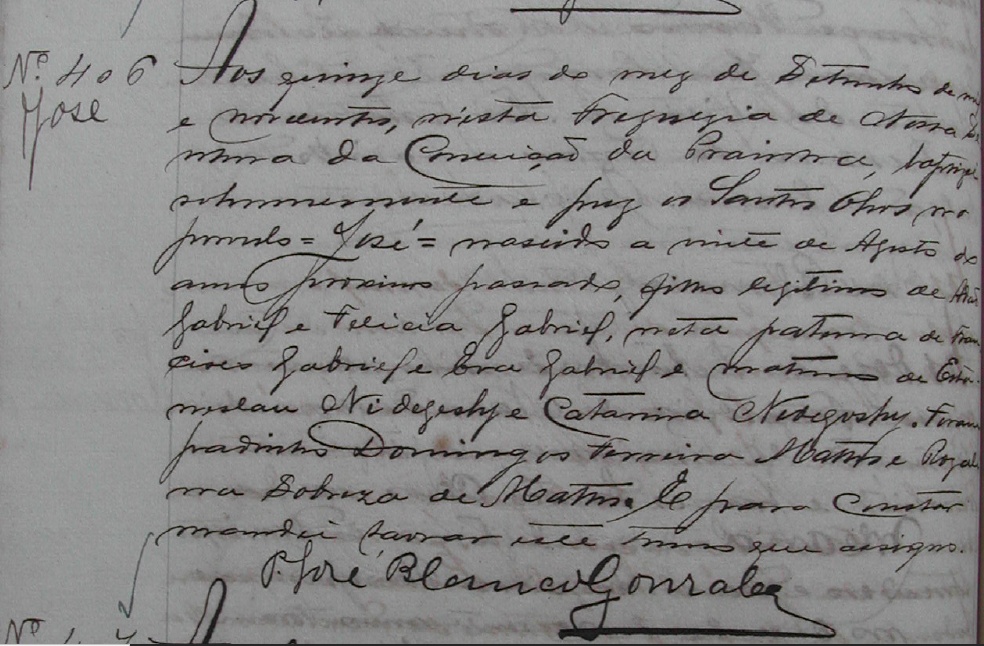 Nº 406
José
Aos quinze dias do mez de Setembro de mil
e novecentos, nesta Freguezia de Nossa Se-
nhora da Conceição da Prainha, baptizei
solemnemente e puz os Santos Oleos no
parvulo = José = nascido a vinte de Agosto do
anno proximo passado, filho legitimo de
Gabriel e Felicia Gabriel, neto paterno de Fran-
cisco Gabriel e Eva Gabriel e materno de Esta-
neslau Nidegosky e Catarina Nidegosky. Foram
padrinhos Domingos Ferreira Mattos e Roza-
na de Mattos. E para constar
mandei lavrar este termo que assigno.
P. José Blanco Gonzalez
Nº